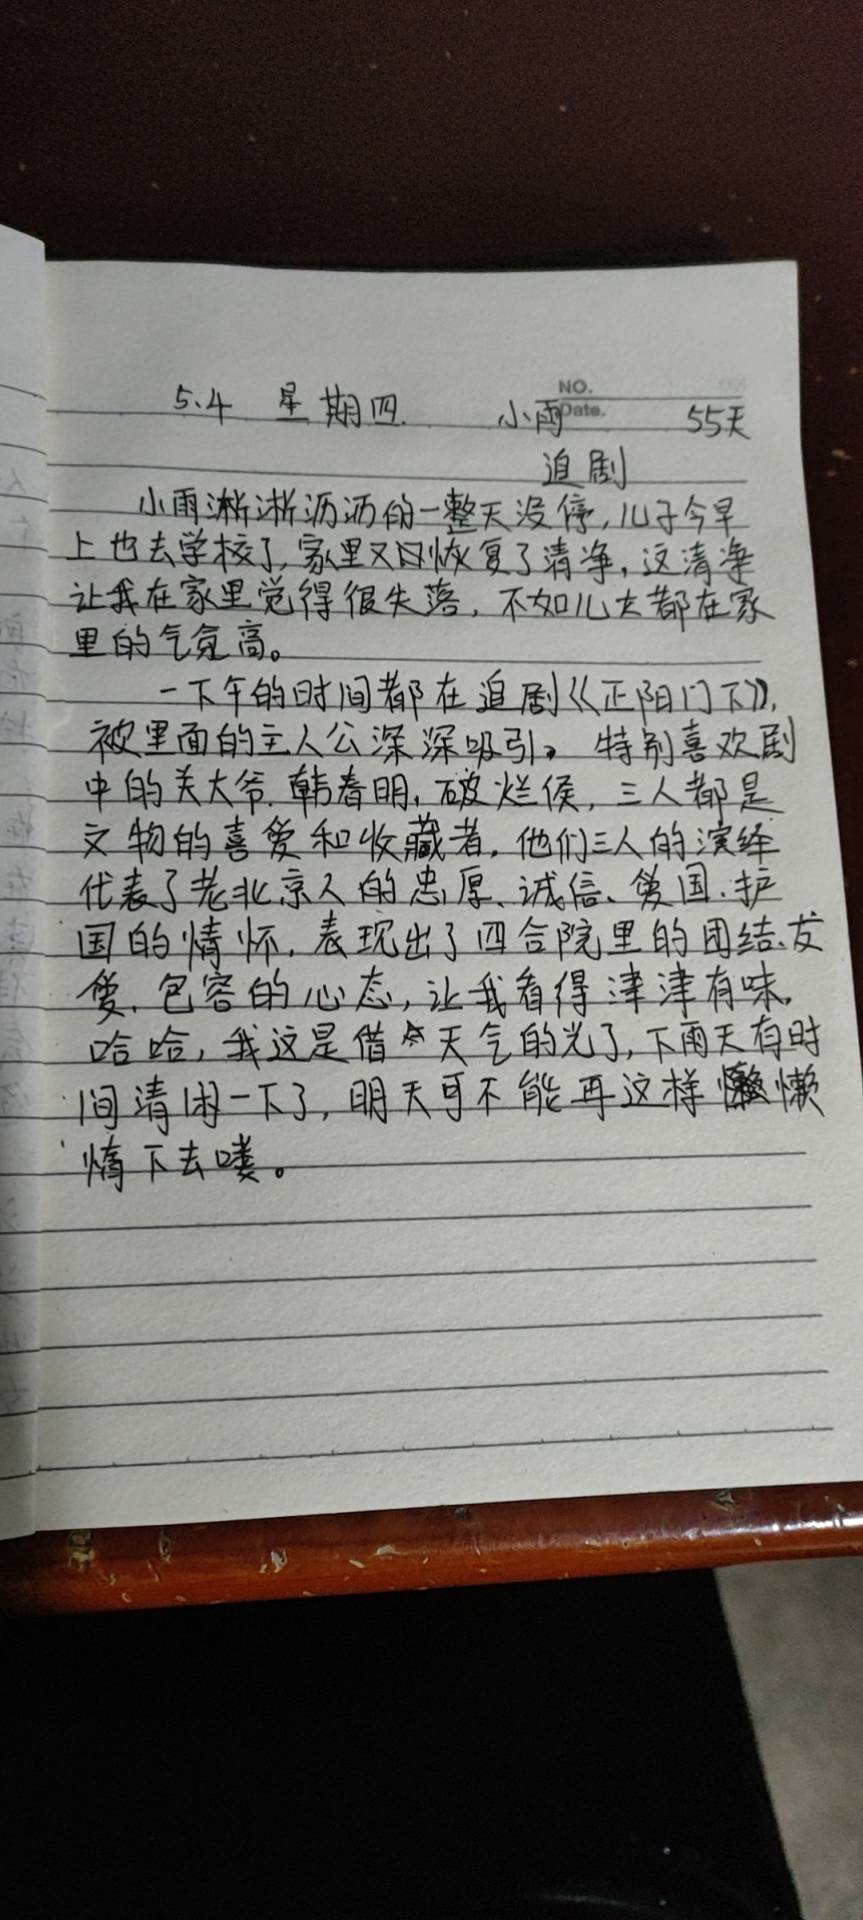 NO.
5.4 星期四. 小雨 Date. 55天
追剧
小雨淅淅沥沥的一整天没停,儿子今早
上也去学校了,家里又恢复了清净,这清净
让我在家里觉得很失落,不如儿女都在家
里的气氛高。
一下午的时间都在追剧《正阳门下》,
被里面的主人公深深吸引。特别喜欢剧
中的关大爷.韩春明,破烂侯,三人都是
文物的喜爱和收藏者,他们三人的演绎
代表了老北京人的忠厚、诚信、爱国.护
国的情怀,表现出了四合院里的团结、友
爱.包容的心态,让我看得津津有味,
哈哈,我这是借天气的光了,下雨天有时
间清闲一下了,明天可不能再这样懒
惰下去喽。